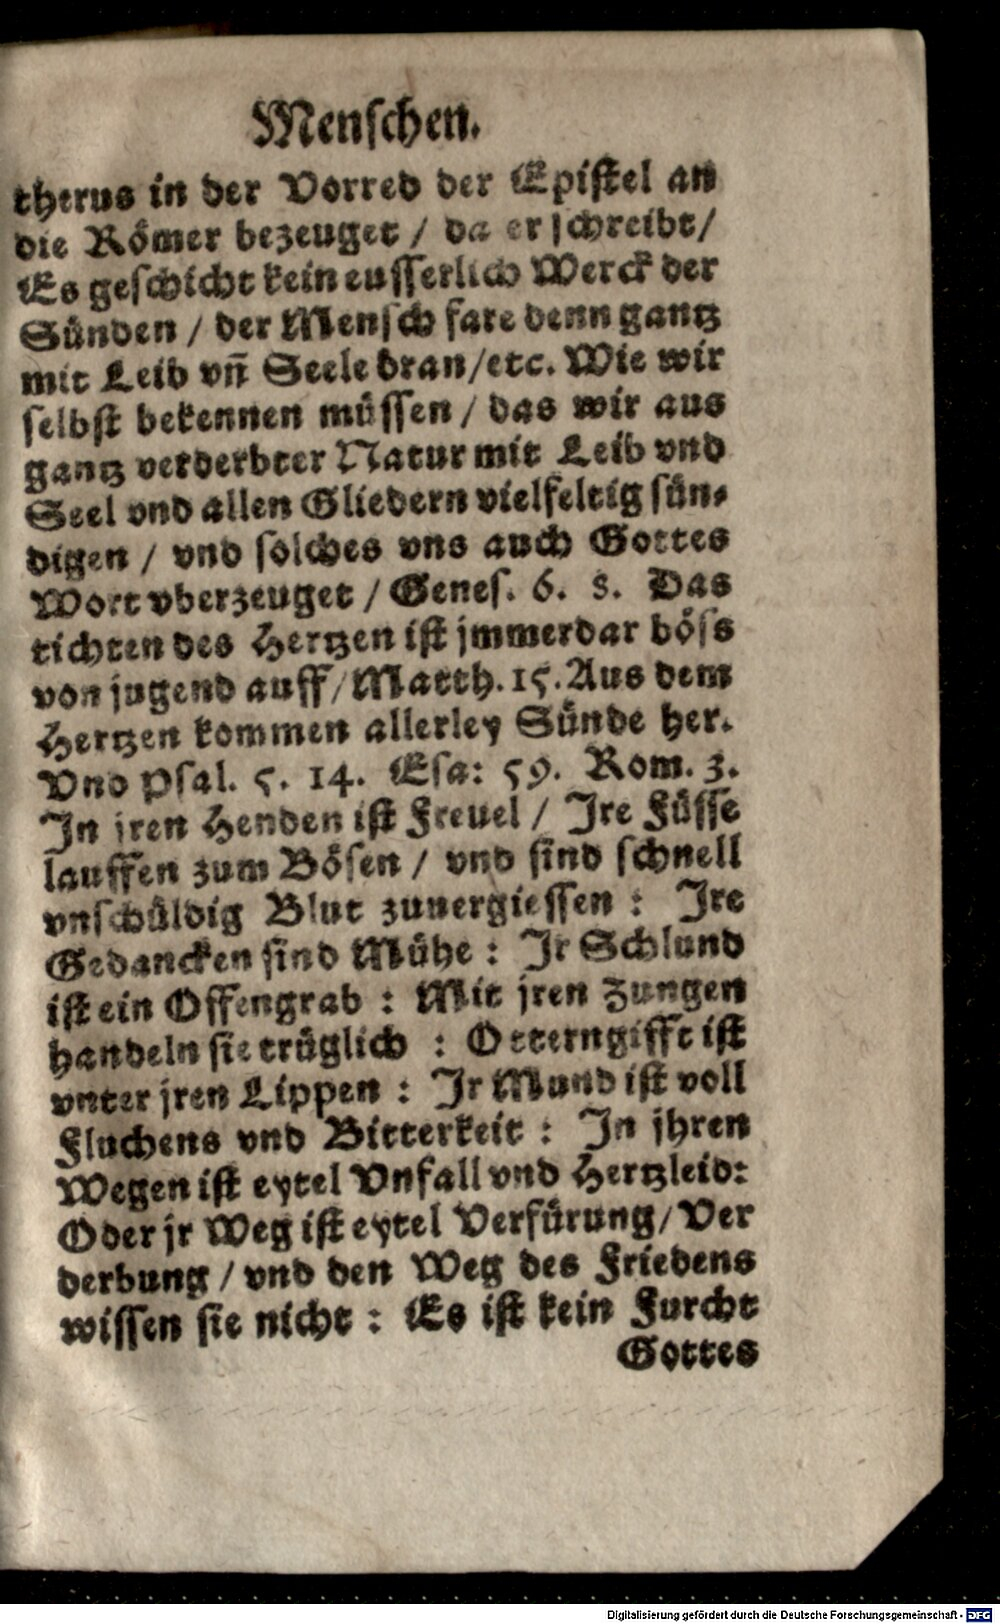 Menschen.
therus in der Vorred der Epistel an
die Römer bezeuget / da er schreibt /
Es geschicht kein eusserlich Werck der
Sünden / der Mensch fare denn gantz
mit Leib vñ Seele dran / etc. Wie wir
selbst bekennen müssen / das wir aus
gantz verderbter Natur mit Leib vnd
Seel vnd allen Gliedern vielfeltig sün⸗
digen / vnd solches vns auch Gottes
Wort vberzeuget / Genes. 6. 8. Das
tichten des Hertzen ist jmmerdar böss
von jugend auff / Matth. 15. Aus dem
Hertzen kommen allerley Sünde her.
Vnd Psal. 5. 14. Esa: 59. Rom. 3.
In jren Henden ist Freuel / Jre Füsse
lauffen zum Bösen / vnd sind schnell
vnschüldig Blut zuuergiessen : Jre
Gedancken sind Mühe : Jr Schlund
ist ein Offengrab : Mit jren Zungen
handeln sie trüglich : Otterngifft ist
vnter jren Lippen : Jr Mund ist voll
Fluchens vnd Bitterkeit : In jhren
Wegen ist eytel Vnfall vnd Hertzleid:
Oder jr Weg ist eytel Verfürung / Ver
derbung / vnd den Weg des Friedens
wissen sie nicht : Es ist kein Furcht
Gottes
Digitalisierung gefördert durch die Deutsche Forschungsgemeinschaft - DFG